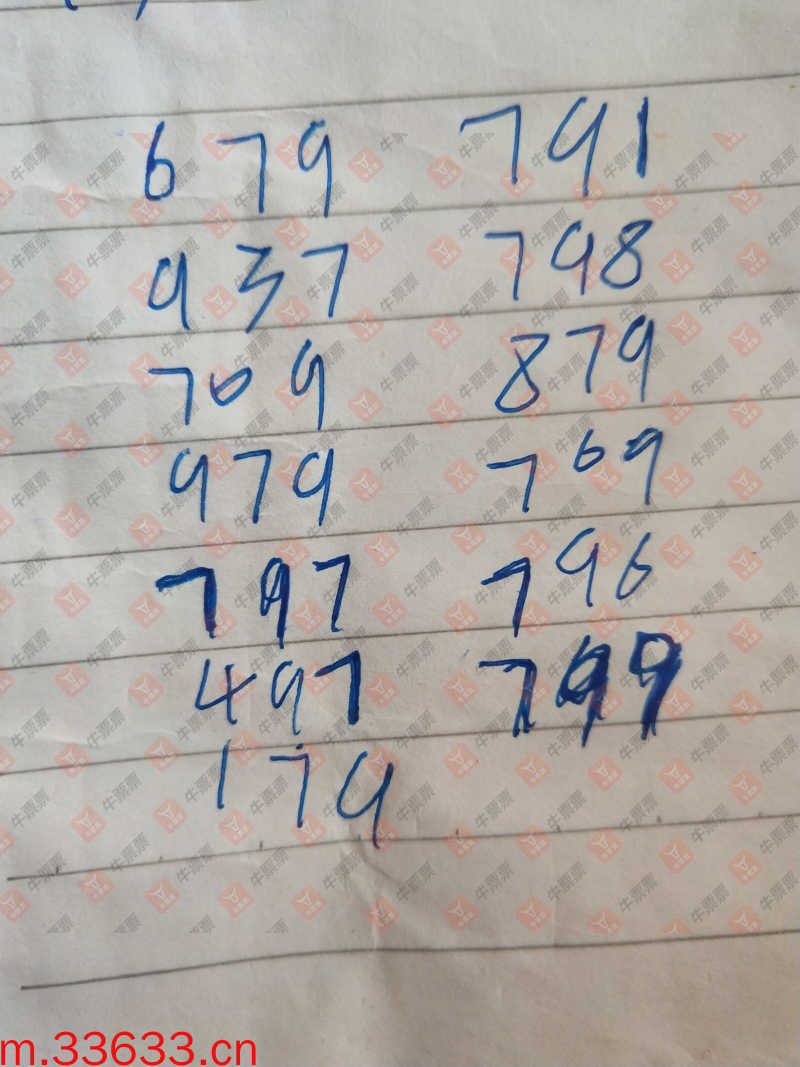 679 791
937 798
709 879
979 769
797 796
497 799
179
m.33633.cn
牛票票